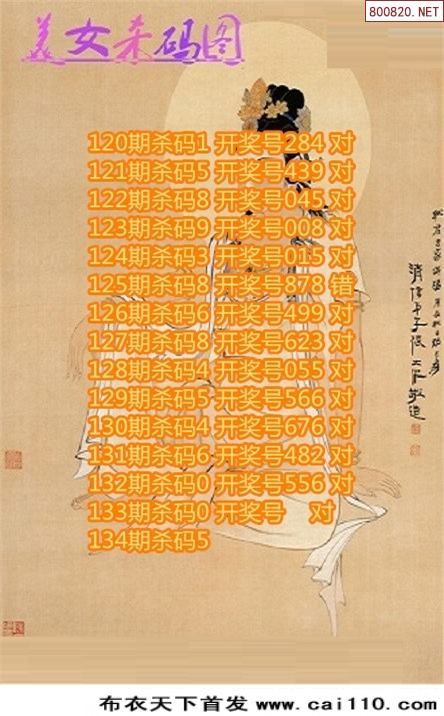 800820.NET
美女杀码图
120期杀码1 开奖号284 对
121期杀码5 开奖号439 对
122期杀码8 开奖号045 对
123期杀码9 开奖号008 对
124期杀码3 开奖号015 对
125期杀码8 开奖号878 错
126期杀码6 开奖号499 对
127期杀码8 开奖号623 对
128期杀码4 开奖号055 对
129期杀码5 开奖号566 对
130期杀码4 开奖号676 对
131期杀码6 开奖号482 对
132期杀码0 开奖号556 对
133期杀码0 开奖号 对
134期杀码5
布衣天下首发 www.cai110.com